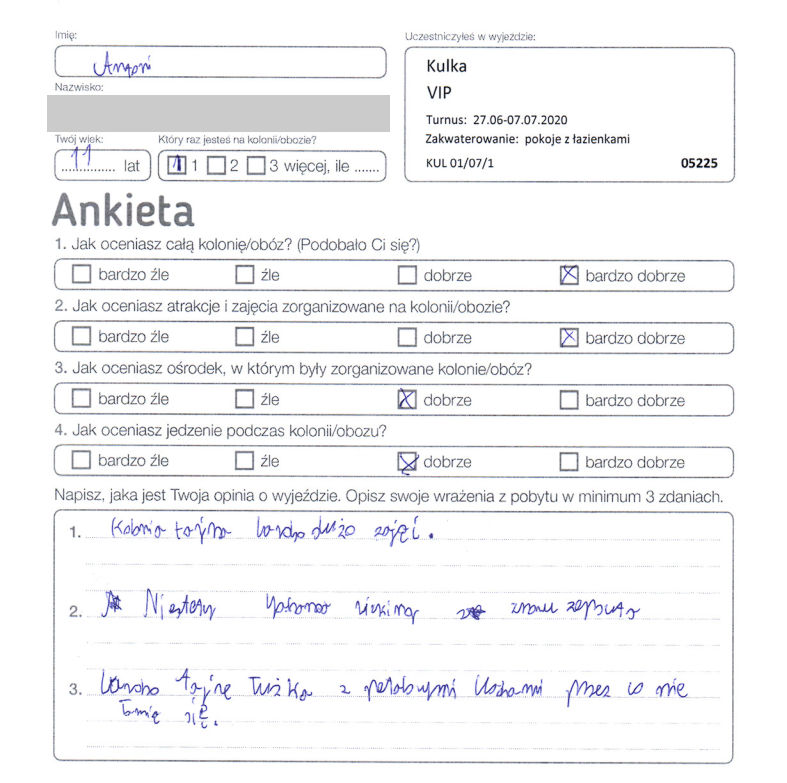 Imię:
Antoni
Uczestniczyłeś w wyjeździe:
Kulka
VIP
Turnus: 27.06-07.07.2020
Zakwaterowanie: pokoje z łazienkami
KUL 01/07/1 05225
Nazwisko:
Twój wiek:
11 lat
Który raz jesteś na kolonii/obozie?
1 2 3 więcej, ile .......
Ankieta
1. Jak oceniasz całą kolonię/obóz? (Podobało Ci się?)
bardzo źle źle dobrze bardzo dobrze
2. Jak oceniasz atrakcje i zajęcia zorganizowane na kolonii/obozie?
bardzo źle źle dobrze bardzo dobrze
3. Jak oceniasz ośrodek, w którym były zorganizowane kolonie/obóz?
bardzo źle źle dobrze bardzo dobrze
4. Jak oceniasz jedzenie podczas kolonii/obozu?
bardzo źle źle dobrze bardzo dobrze
Napisz, jaka jest Twoja opinia o wyjeździe. Opisz swoje wrażenia z pobytu w minimum 3 zdaniach.
1. Kolonia fajna bardzo dużo zajęć.
2. Niestety
3. bardzo fajne łużka z
się.